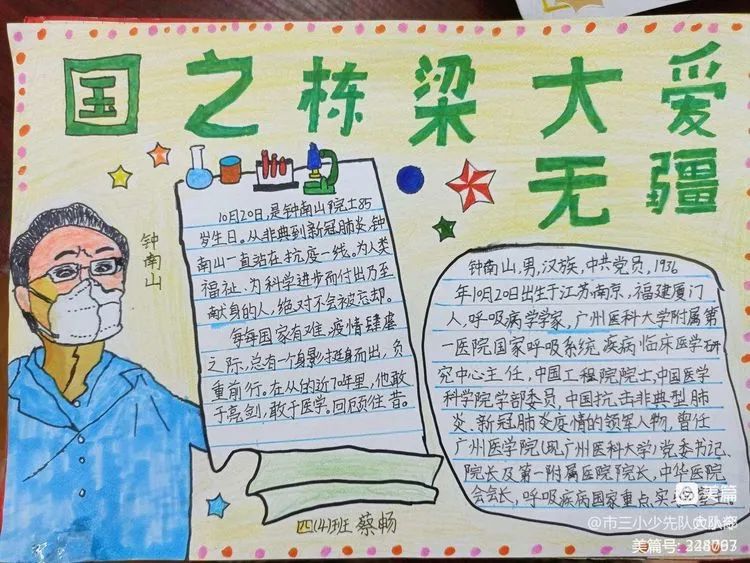 国之栋梁大爱
无疆
钟南山
10月20日,是钟南山院士85
岁生日。从非典到新冠肺炎,钟
南山一直站在抗疫一线。为人类
福祉、为科学进步而付出乃至
献身的人,绝对不会被忘却。
每每国家有难、疫情肆虐
之际,总有一个身影挺身而出,负
重前行。在从的近70年里,他敢
于亮剑,敢于医学。回顾往昔。
钟南山,男,汉族,中共党员,1936
年10月20日出生于江苏南京,福建厦门
人,呼吸病学学家,广州医科大学附属第
一医院国家呼吸系统疾病临床医学研
究中心主任,中国工程院院士,中国医学
科学院学部委员,中国抗击非典型肺
炎、新冠肺炎疫情的领军人物,曾任
广州医学院(现广州医科大学)党委书记、
院长及第一附属医院院长,中华医院
会会长,呼吸疾病国家重点实
四(4)班 蔡畅
美篇
@市三小少先队大队部
美篇号: